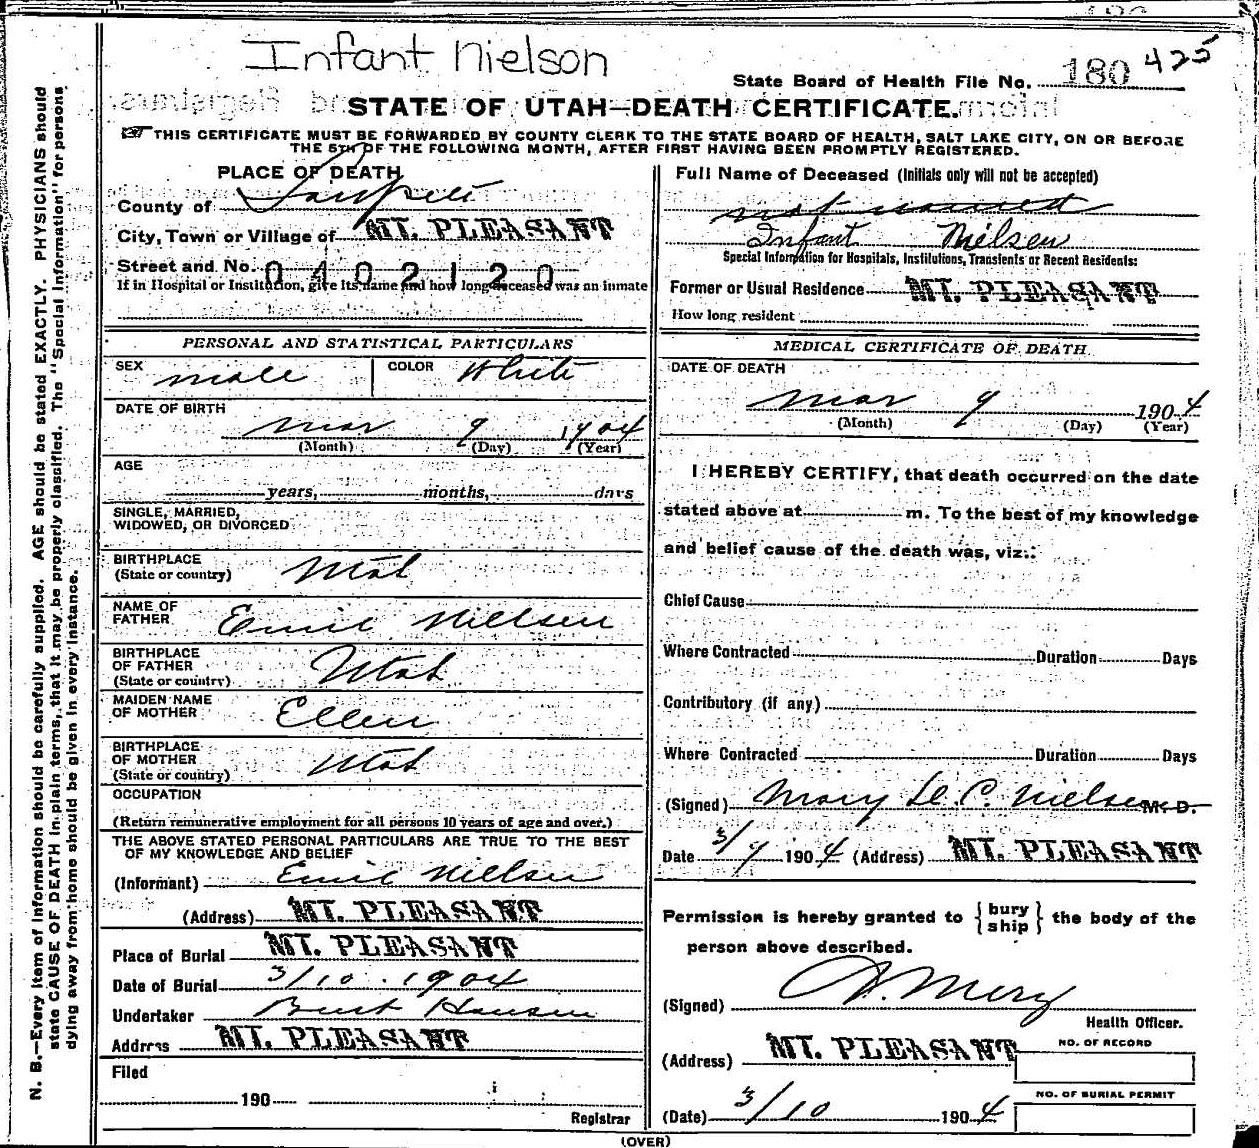 Infant Nielson
State Board of Health File No. 180 425
STATE OF UTAH—DEATH CERTIFICATE.
THIS CERTIFICATE MUST BE FORWARDED BY COUNTY CLERK TO THE STATE BOARD OF HEALTH, SALT LAKE CITY, ON OR BEFORE
THE 5TH OF THE FOLLOWING MONTH, AFTER FIRST HAVING BEEN PROMPTLY REGISTERED.
PLACE OF DEATH
County of Sanpete
City, Town or Village of MT. PLEASANT
Street and No. 0402120
If in Hospital or Institution, give its name and how long deceased was an inmate
PERSONAL AND STATISTICAL PARTICULARS
SEX male COLOR White
DATE OF BIRTH
Mar 9 1904
(Month) (Day) (Year)
AGE
years, months, days
SINGLE, MARRIED,
WIDOWED, OR DIVORCED
BIRTHPLACE
(State or country) Utah
NAME OF
FATHER Emil Nielsen
BIRTHPLACE
OF FATHER
(State or country) Utah
MAIDEN NAME
OF MOTHER Ellen
BIRTHPLACE
OF MOTHER
(State or country) Utah
OCCUPATION
(Return remunerative employment for all persons 10 years of age and over.)
THE ABOVE STATED PERSONAL PARTICULARS ARE TRUE TO THE BEST
OF MY KNOWLEDGE AND BELIEF
(Informant) Emil Nielsen
(Address) MT. PLEASANT
Place of Burial MT. PLEASANT
Date of Burial 3/10.1904
Undertaker Hansen
Address MT. PLEASANT
Filed
190
Registrar
Full Name of Deceased (Initials only will not be accepted)
not named
Infant Nielsen
Special Information for Hospitals, Institutions, Transients or Recent Residents:
Former or Usual Residence MT. PLEASANT
How long resident
MEDICAL CERTIFICATE OF DEATH
DATE OF DEATH
Mar 9 1904
(Month) (Day) (Year)
I HEREBY CERTIFY, that death occurred on the date
stated above at m. To the best of my knowledge
and belief cause of the death was, viz.:
Chief Cause
Where Contracted Duration Days
Contributory (if any)
Where Contracted Duration Days
(Signed) Mary De C. Nielsen M. D.
Date 3/9 1904 (Address) MT. PLEASANT
Permission is hereby granted to { bury
ship } the body of the
person above described.
(Signed)
Health Officer.
(Address) MT. PLEASANT
NO. OF RECORD
NO. OF BURIAL PERMIT
(Date) 3/10 1904
(OVER)
N. B.—Every item of information should be carefully supplied. AGE should be stated EXACTLY. PHYSICIANS should
state CAUSE OF DEATH in plain terms, that it may be properly classified. The "Special Information" for persons
dying away from home should be given in every instance.